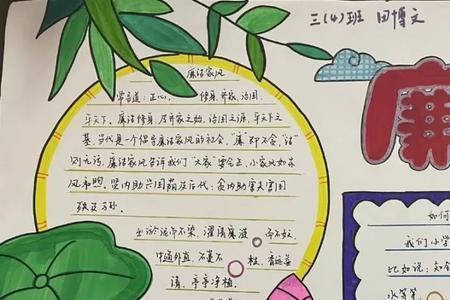 三(4)班 田博文
廉
廉洁家风
常言道:正心、修身、齐家、治国、
平天下。廉洁修身,乃齐家之始,治国之源,平天下之
基。当代是一个倡导廉洁家风的社会,"廉"即不贪,"洁"
则无污,廉洁家风告诉我们"大家"要公正,小家风如春
风和煦。党内助
出淤泥而不染,濯清涟 而不妖
中通外直,不蔓不 枝,香远益
清,亭亭净植。
如何
我们小学
比如说:
水笔笔